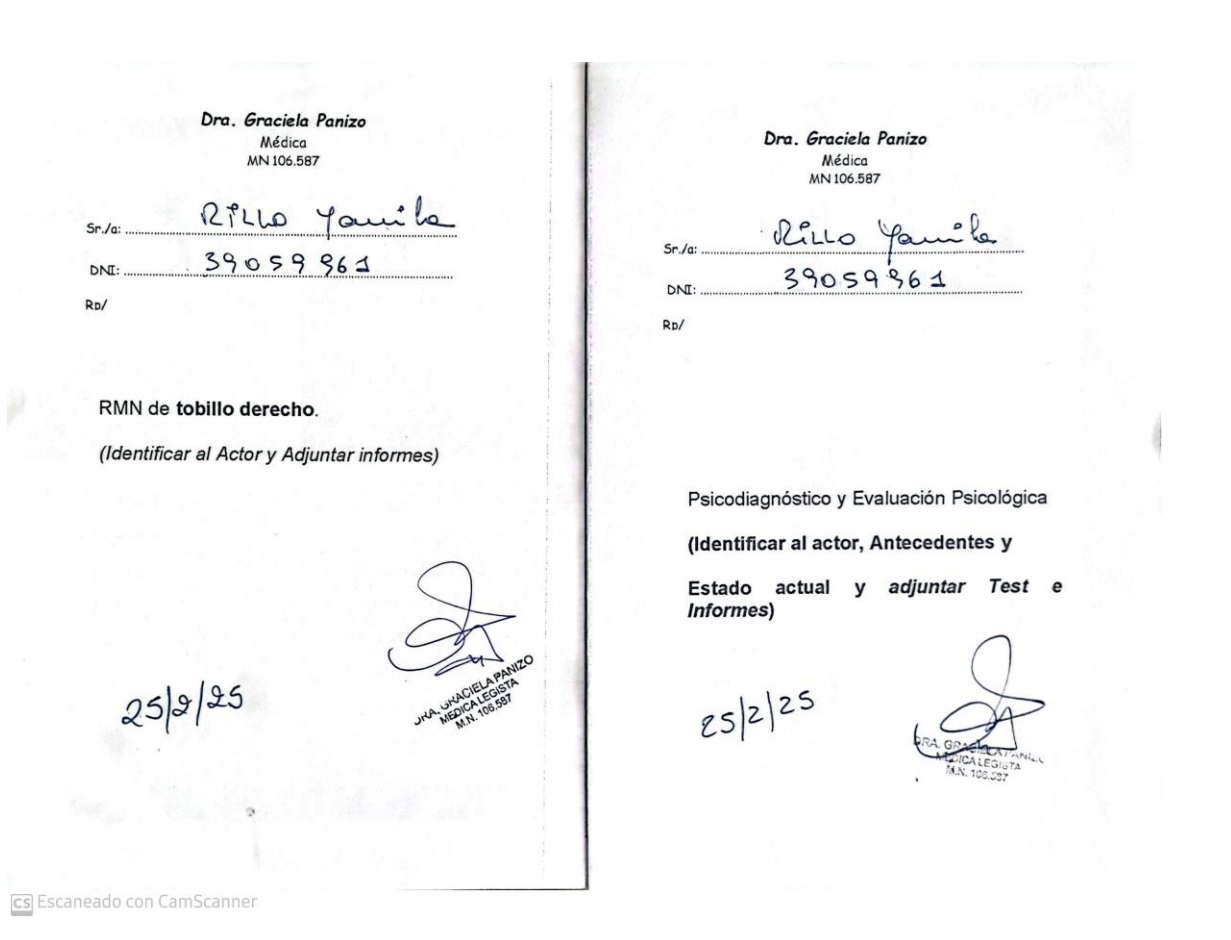 Dra. Graciela Panizo
Médica
MN 106.587
Sr./a: RILLO Yamila
DNI: 39059961
Rp/
RMN de tobillo derecho.
(Identificar al Actor y Adjuntar informes)
25/2/25
DRA. GRACIELA PANIZO
MEDICA LEGISTA
M.N. 106.587
Dra. Graciela Panizo
Médica
MN 106.587
Sr./a: RILLO Yamila
DNI: 39059961
Rp/
Psicodiagnóstico y Evaluación Psicológica
(Identificar al actor, Antecedentes y
Estado actual y adjuntar Test e
Informes)
25/2/25
DRA. GRACIELA PANIZO
MEDICA LEGISTA
M.N. 106.587
CS Escaneado con CamScanner